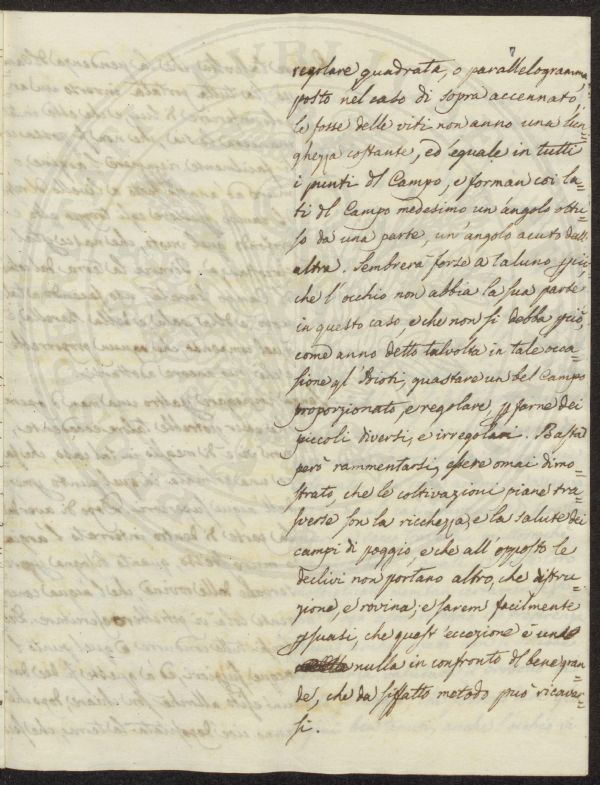 7
regolare quadrata, o parallelogramma,
posto nel caso di sopra accennato,
le fosse delle viti non anno una lun=
ghezza costante, ed' eguale in tutti
i punti dl Campo, e forman coi la=
ti dl Campo medesimo un' angolo ottu=
so da una parte, un' angolo acuto dall'
altra. Sembrerà forse a taluno, 
che l' occhio non abbia la sua parte
in questo caso, e che non si debba 
come anno detto talvolta in tale occa=
sione gl' Idioti, guastare un bel Campo
proporzionato, e regolare, p farne dei
piccoli diversi, e irregolari. Basta
però rammentarsi, essere omai dimo=
strato, che le coltivazioni piane tra=
sverse son la ricchezza, e la salute dei
campi di poggio, e che all' opposto le
declivi non portano altro, che distru=
zione, e rovina; e sarem facilmente
psuasi, che quest' eccezione è un
nulla in confronto dl bene gran=
de, che da siffatto metodo può ricaver=
si.